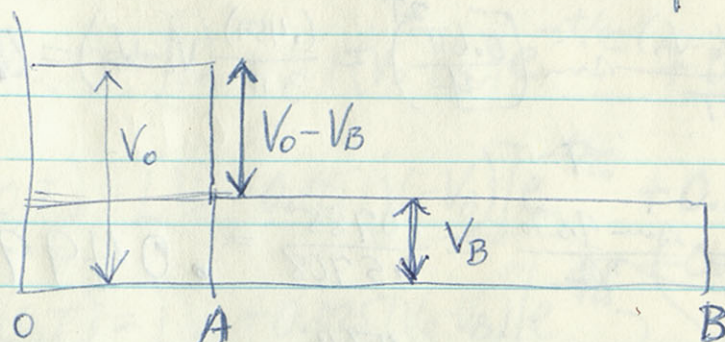 V₀
V₀-V_B
V_B
O
A
B